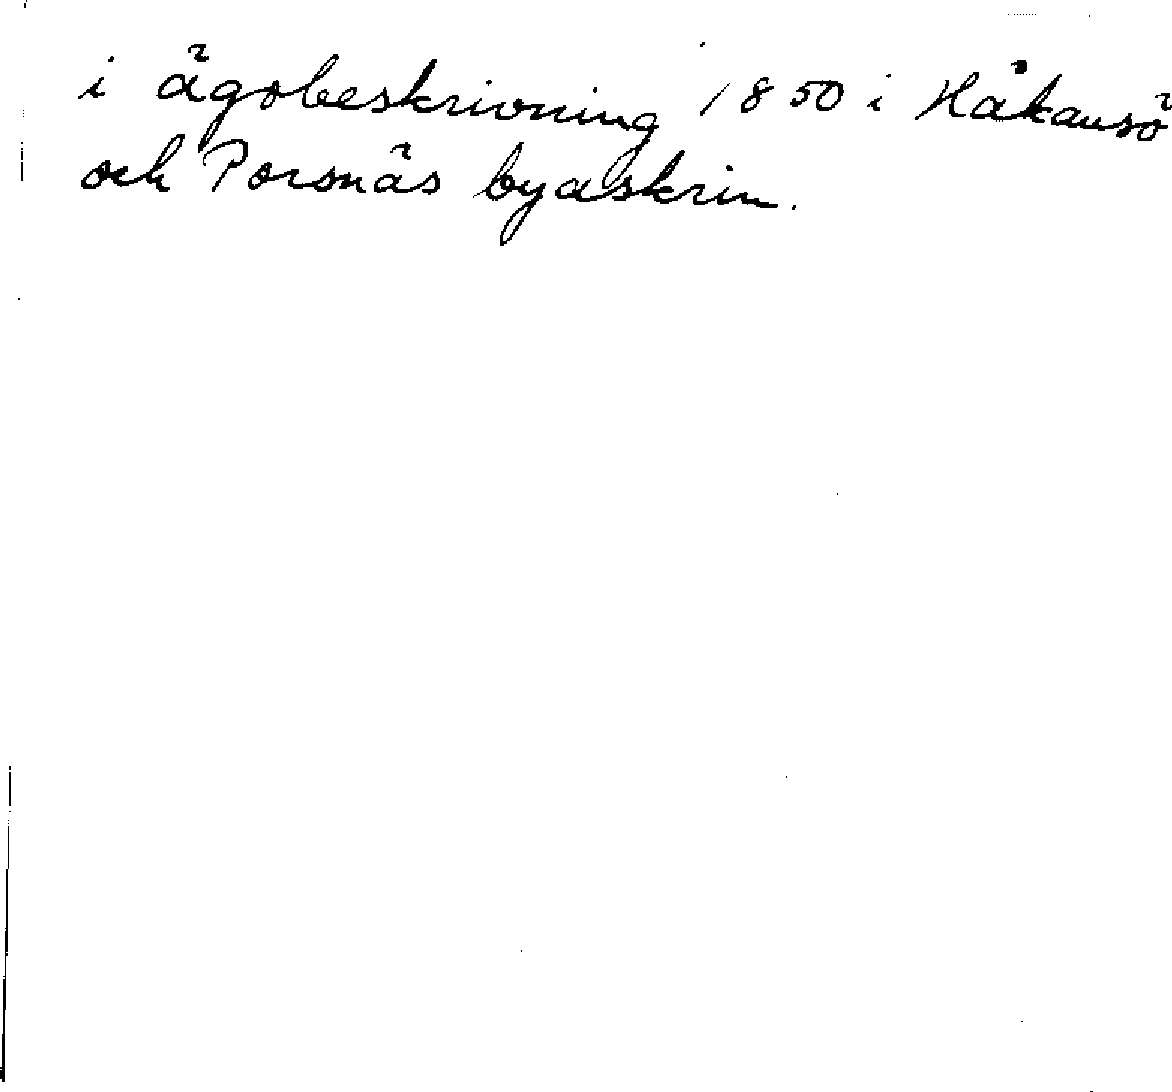 i ägobeskrivning 1850 i Håkansö
och Porsnäs byaskrin.